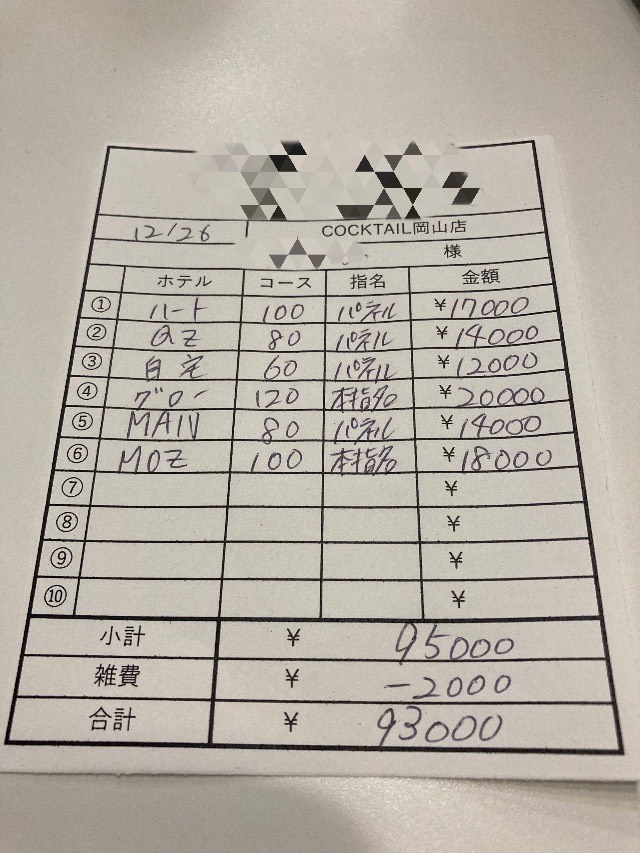 12/26 COCKTAIL岡山店
様
ホテル コース 指名 金額
① ハート 100 パネル ¥17000
② QZ 80 パネル ¥14000
③ 自宅 60 パネル ¥12000
④ グロー 120 本指名 ¥20000
⑤ MAIN 80 パネル ¥14000
⑥ MOZ 100 本指名 ¥18000
⑦ ¥
⑧ ¥
⑨ ¥
⑩ ¥
小計 ¥ 95000
雑費 ¥ -2000
合計 ¥ 93000